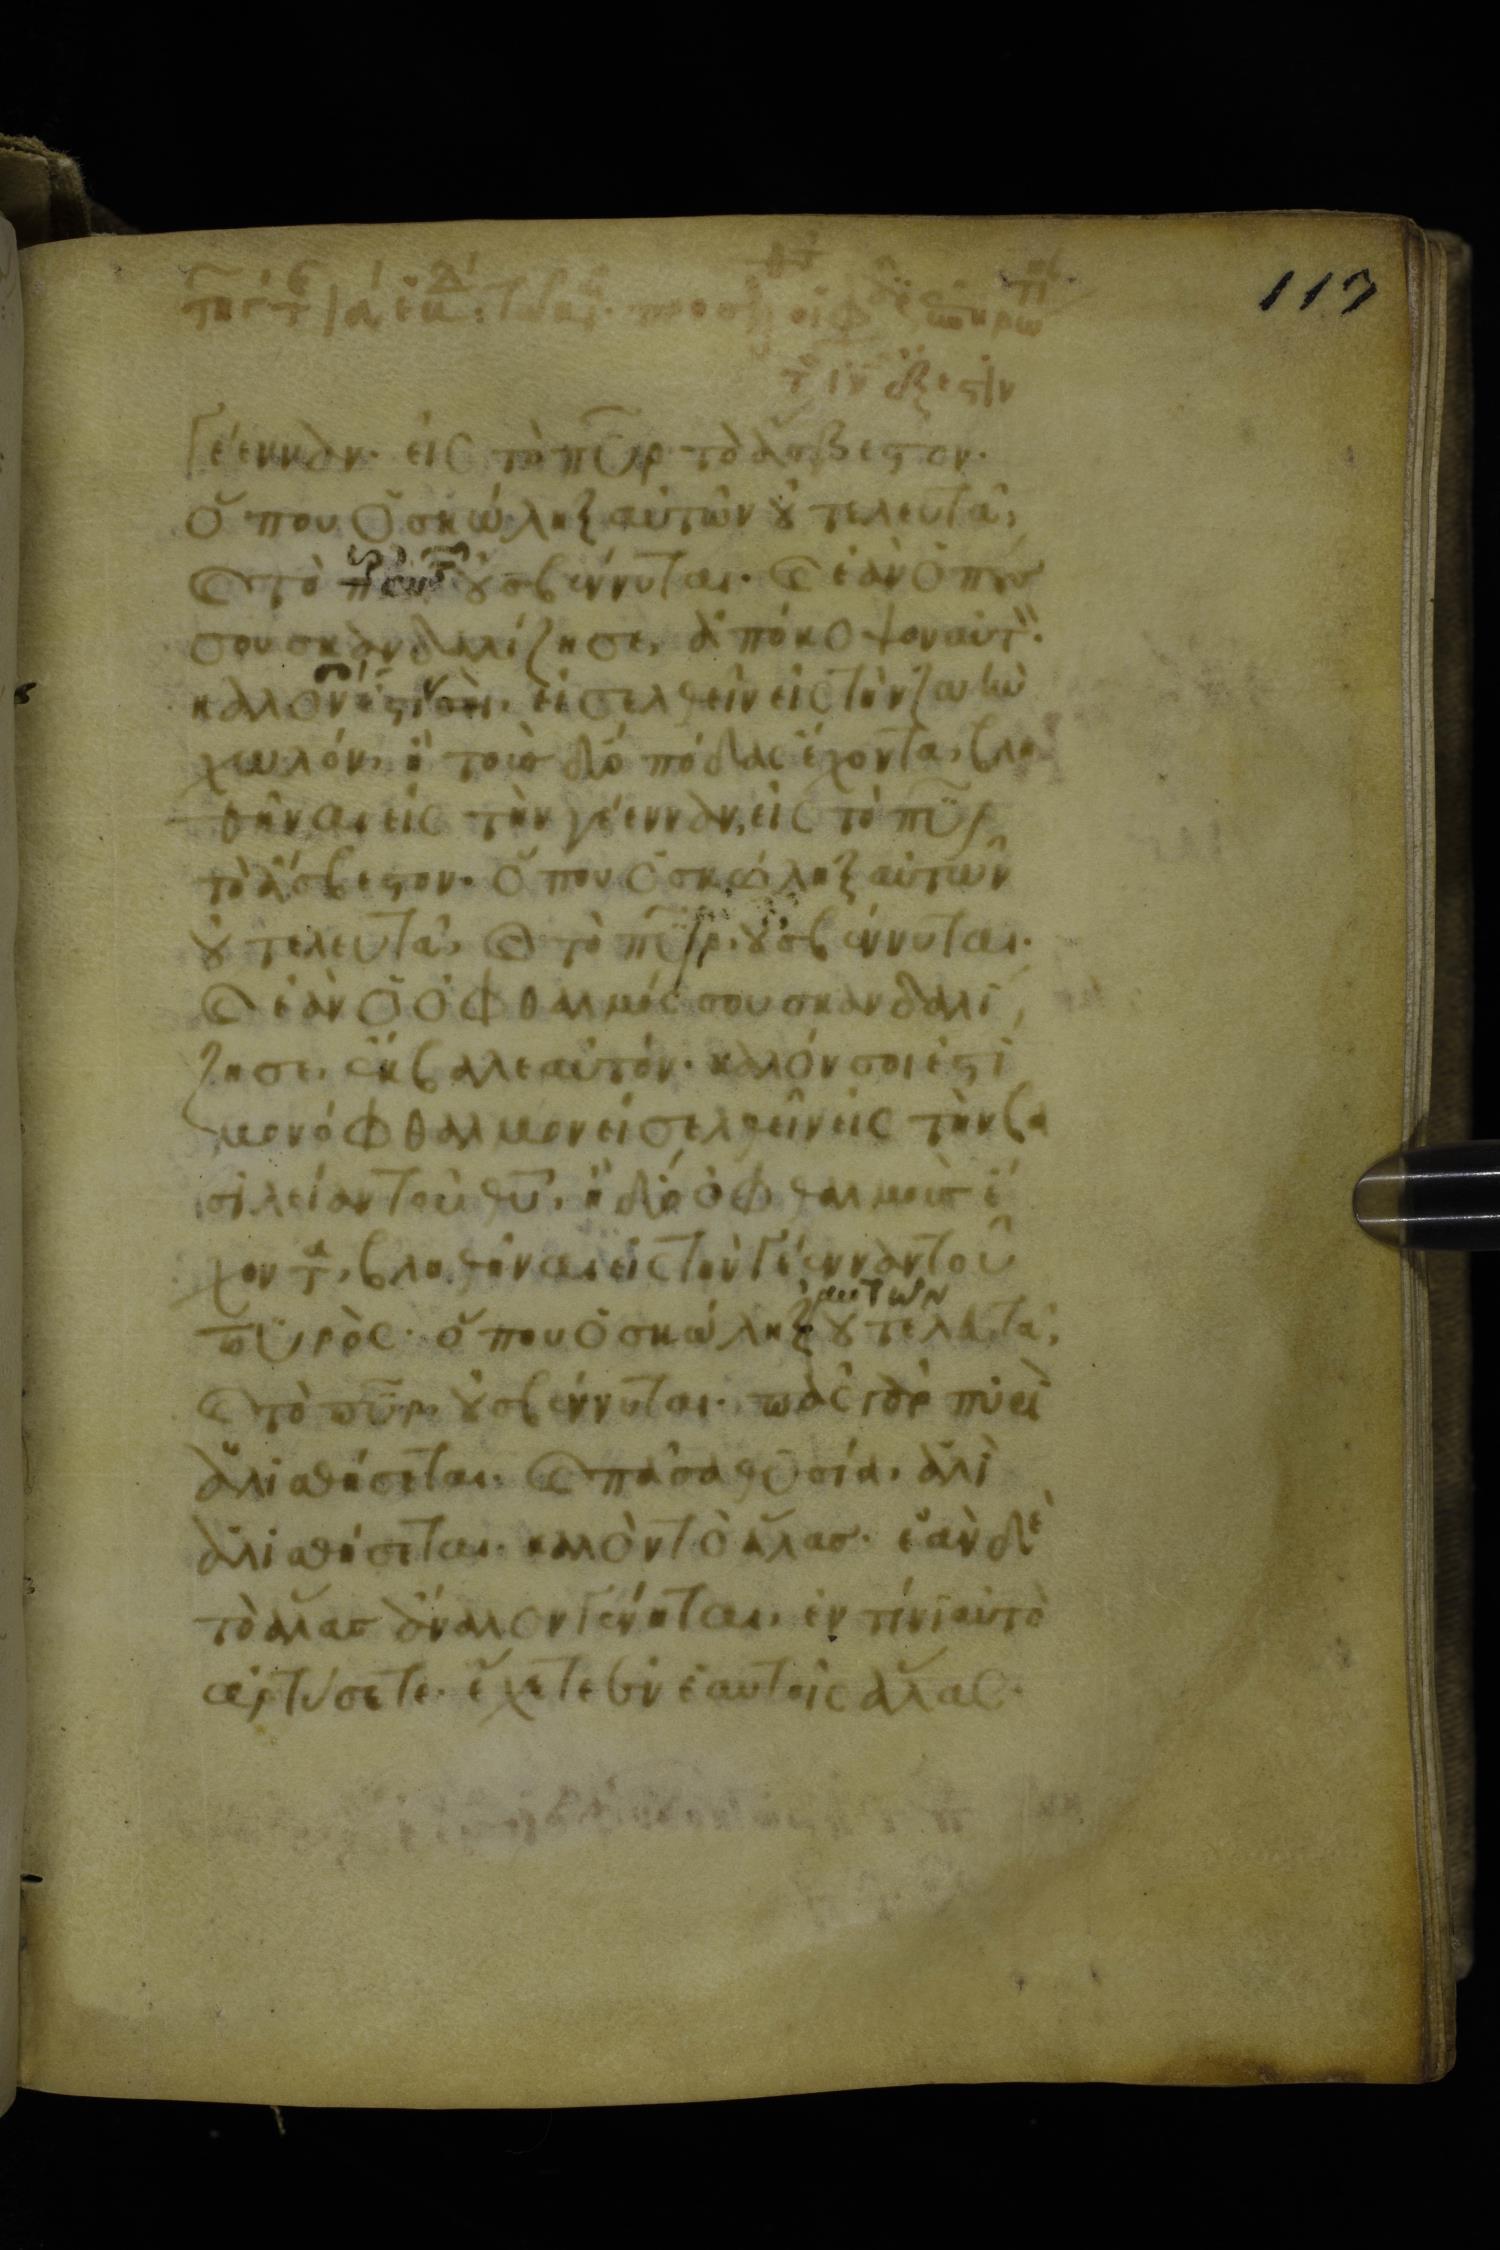 117
γέενναν· εἰς τὸ πῦρ τὸ ἄσβεστον·
ὅπου ὁ σκώληξ αὐτῶν οὐ τελευτᾶ,
καὶ τὸ πῦρ οὐ σβέννυται· καὶ ἐὰν ὁ πούς
σου σκανδαλίζη σε, ἀπόκοψον αὐτόν·
καλόν ἐστιν σοι εἰσελθεῖν εἰς τὴν ζωὴν
χωλόν, ἢ τοὺς δύο πόδας ἔχοντα, βλη
θῆναι εἰς τὴν γέενναν, εἰς τὸ πῦρ
τὸ ἄσβεστον· ὅπου ὁ σκώληξ αὐτῶν
οὐ τελευτᾶ, καὶ τὸ πῦρ, οὐ σβέννυται·
καὶ ἐὰν ὁ ὀφθαλμός σου σκανδαλί
ζη σε, ἔκβαλε αὐτόν· καλόν σοι ἐστὶ
μονόφθαλμον εἰσελθεῖν εἰς τὴν βα
σιλείαν τοῦ θυ, ἢ δύο ὀφθαλμοὺς ἔ
χοντα, βληθῆναι εἰς τὴν γέενναν τοῦ
πυρὸς· ὅπου ὁ σκώληξ αὐτῶν οὐ τελευτᾶ,
καὶ τὸ πῦρ, οὐ σβέννυται· πᾶς γὰρ πυρὶ
ἁλισθήσεται· καὶ πᾶσα θυσία, ἁλὶ
ἁλισθήσεται· καλὸν τὸ ἅλας· ἐὰν δὲ
τὸ ἅλας ἄναλον γένηται, ἐν τίνι αὐτὸ
ἀρτύσετε· ἔχετε ἐν ἑαυτοῖς ἅλας·